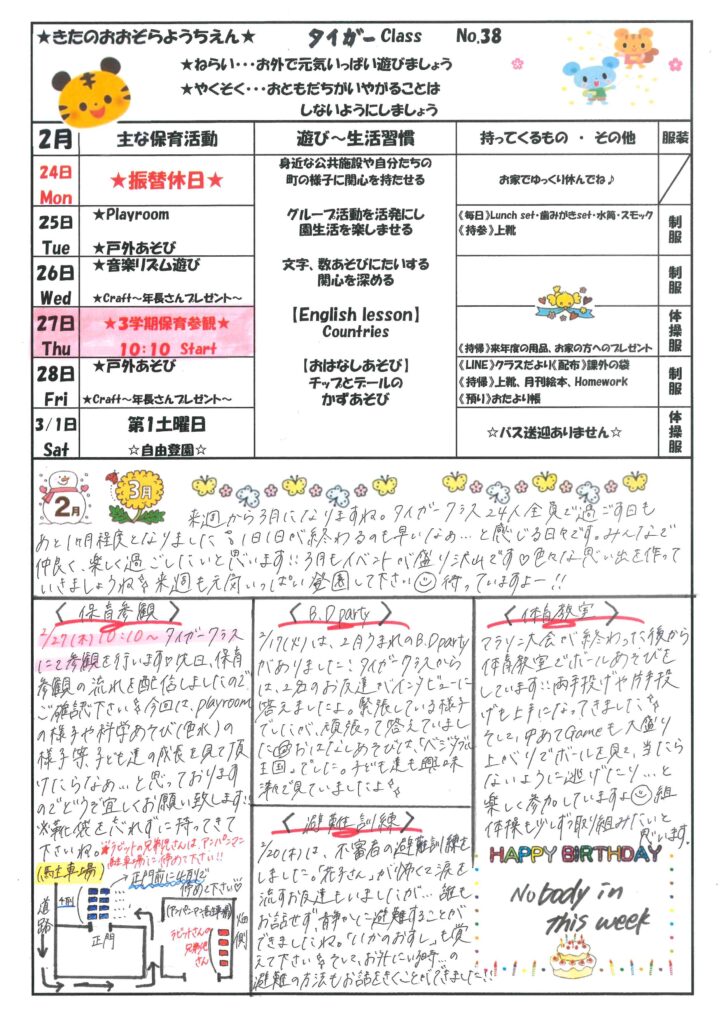 ★きたのおおぞらようちえん★ タイガー Class No.38
★ねらい・・・お外で元気いっぱい遊びましょう
★やくそく・・・おともだちがいやがることは
しないようにしましょう
2月 主な保育活動 遊び～生活習慣 持ってくるもの ・ その他 服装
24日 Mon ★振替休日★
身近な公共施設や自分たちの
町の様子に関心を持たせる
お家でゆっくり休んでね♪
25日 Tue ★Playroom
★戸外あそび
グループ活動を活発にし
園生活を楽しませる
《毎日》Lunch set・歯みがきset・水筒・スモック
《持参》上靴
制服
26日 Wed ★音楽リズム遊び
★Craft～年長さんプレゼント～
文字、数あそびにたいする
関心を深める
制服
27日 Thu ★3学期保育参観★
10：10 Start
【English lesson】
Countries
《持帰》来年度の用品、お家の方へのプレゼント
体操服
28日 Fri ★戸外あそび
★Craft～年長さんプレゼント～
【おはなしあそび】
チップとデールの
かずあそび
《LINE》クラスだより《配布》課外の袋
《持帰》上靴、月刊絵本、Homework
《預り》おたより帳
制服
3/1日 Sat 第1土曜日
☆自由登園☆
☆バス送迎ありません☆
体操服
2月 3月
来週から3月になりますね。タイガークラス24人全員で過ごす日も
あと1ヶ月程度となりました 1日1日が終わるのも早いなぁ…と感じる日々です。みんなで
仲良く、楽しく過ごしたいと思います!! 3月もイベントが盛り沢山です♡色々な思い出を作って
いきましょうね 来週も元気いっぱい登園して下さい 待っていますよー!!
〈保育参観〉
2/27(木)10:10～タイガークラス
にて参観を行います♡先日、保育
参観の流れを配信しましたので
ご確認下さい 今回は、playroom
の様子や科学あそび(色水)の
様子等子ども達の成長を見て頂
けたらなぁ…と思っております
のでどうぞ宜しくお願い致します!!
※靴袋を忘れずに持ってきて
下さいね。※ラビットの兄弟児さんは、アンパンマン
駐車場に停めて下さい!!
(駐車場)
正門前に4列で
停めて下さい♡
4列
道路
正門
(アンパンマン駐車場)
ラビットさんの
兄弟児
さん
畑側
〈B.D party〉
2/17(火)は、2月うまれのB.D party
がありました！タイガークラスから
は、2名のお友達がインタビューに
答えましたよ。緊張している様子
でしたが、頑張って答えていまし
た おはなしあそびは、「ベジタブル
王国」でした。子ども達も興味
津々で見ていましたよ
〈避難訓練〉
2/20(木)は、不審者の避難訓練を
しました。「花子さん」が怖くて涙を
流すお友達もいましたが… 誰も
お話せず、静かに避難することが
できましたね。「いかのおすし」も覚え
て下さい そして、お外にいる時…の
避難の方法もお話をきくことができました!!
〈体育教室〉
マラソン大会が終わった後から
体育教室でボールあそびを
しています!! 両手投げや片手投
げも上手になってきました
そして、中あてGameも大盛り
上がりでボールを見て、当たら
ないように逃げたり…と
楽しく参加していますよ 組
体操も少しずつ取り組みたいと
思います。
HAPPY BIRTHDAY
Nobody in
this week